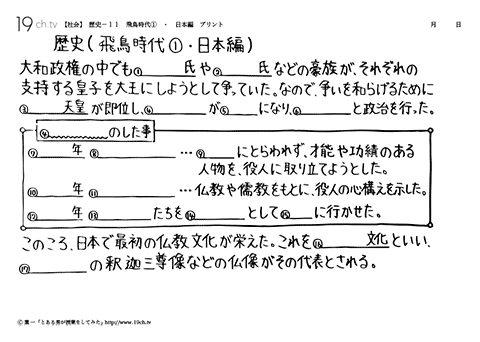 19 ch.tv 【社会】 歴史-11 飛鳥時代① ・ 日本編 プリント 月 日
歴史(飛鳥時代①・日本編)
大和政権の中でも①____氏や②____氏などの豪族が、それぞれの
支持する皇子を大王にしようとして争っていた。なので、争いを和らげるために
③____天皇が即位し、④____が⑤____になり、⑥____と政治を行った。
④____のした事
⑦____年 ⑧____ …⑨____にとらわれず、才能や功績のある
人物を、役人に取り立てようとした。
⑩____年 ⑪____ …仏教や儒教をもとに、役人の心構えを示した。
⑫____年 ⑬____たちを⑭____として⑮____に行かせた。
このころ、日本で最初の仏教文化が栄えた。これを⑯____文化といい、
⑰____の釈迦三尊像などの仏像がその代表とされる。
© 葉一「とある男が授業をしてみた」http://www.19ch.tv